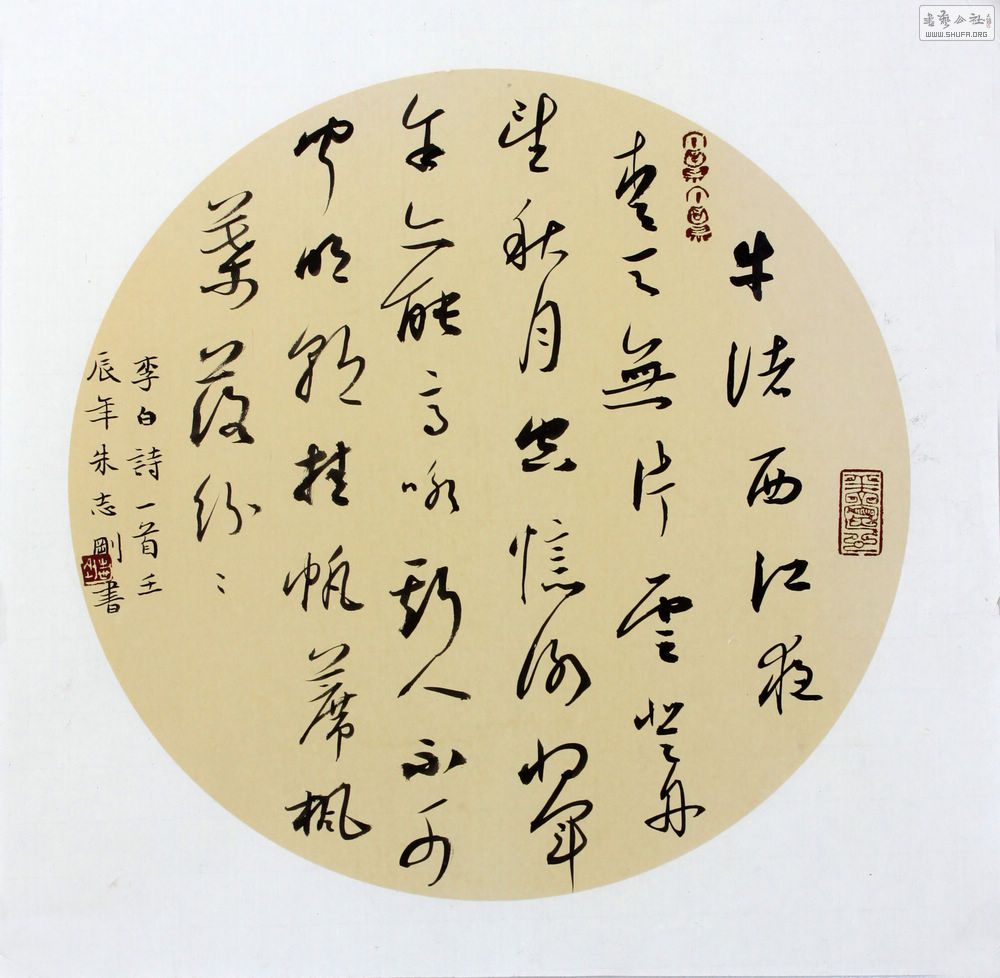 牛渚西江夜
青天無片雲登舟
望秋月空憶謝將軍
余亦能高咏斯人不可
聞明朝挂帆蓆楓
葉落紛〻
李白詩一首壬
辰年朱志剛書
書藝公社
WWW.SHUFA.ORG